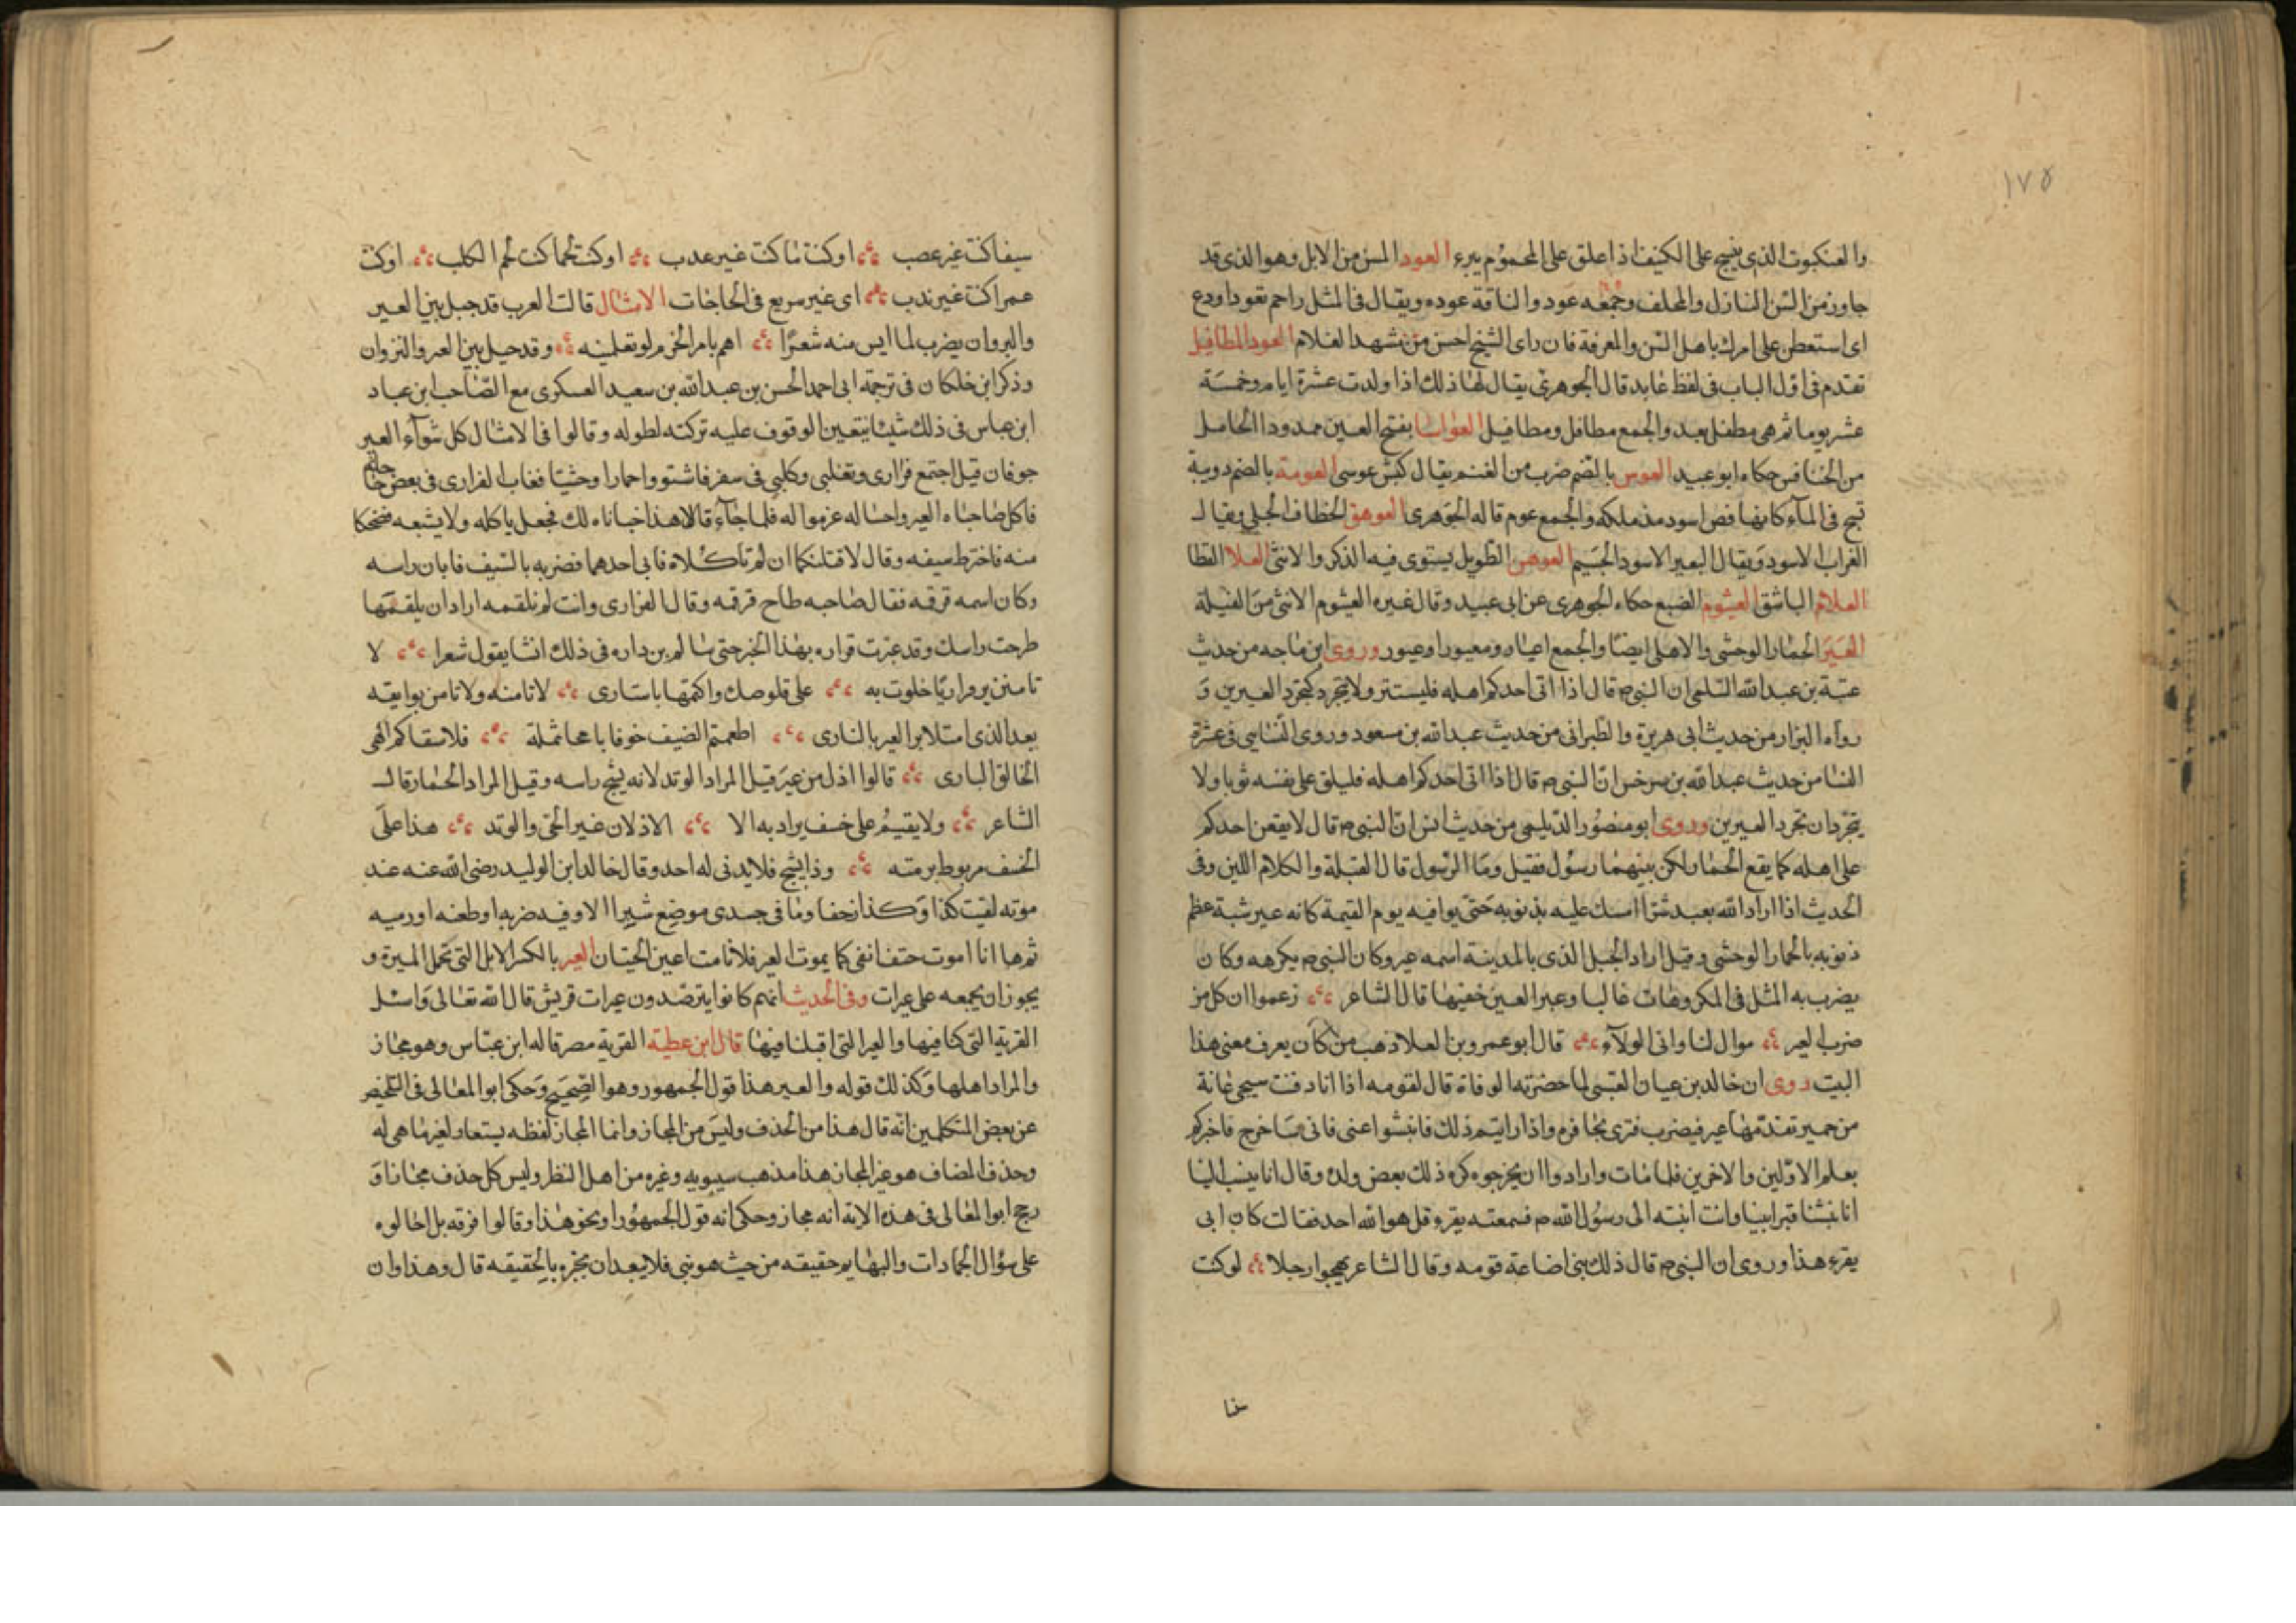 ١٧٥
والعنكبوت الذي ينسج على الكنيف اذا علق على المحموم يبرء العود المسن من الابل وهو الذي قد
جاوز من السن البازل والمخلف وجمعه عود والناقة عوده ويقال في المثل زاحم بعود اودع
اى استعن على امرك باهل السن والمعرفة فان راى الشيخ احسن من مشهد الغلام العوذ المطافيل
تقدم في اول الباب في لفظ عايد قال الجوهري يقال لها ذلك اذا ولدت عشرة ايام وخمسة
عشر يوما ثم هي مطفل بعد والجمع مطافل ومطافيل العواسا بفتح العين ممدودا الحامل
من الخنافس حكاه ابو عبيد العوس بالضم ضرب من الغنم يقال كبش عوسى العومة بالضم دويبة
تسبح في المآء كانها فص اسود مدملكه والجمع عوم قاله الجوهري العوهق الخطاف الجبلي ويقال
الغراب الاسود ويقال البعير الاسود الجسيم العوهس الطويل يستوى فيه الذكر والانثى العلا القطا
العلام الباشق العيثوم الضبع حكاه الجوهرى عن ابى عبيد وقال غيره العيثوم الانثى من الفيلة
العير الحمار الوحشي والاهلى ايضا والجمع اعيار ومعيورا وعيور وروى ابن ماجه من حديث
عتبة بن عبد الله السلمي ان النبي م قال اذا اتى احدكم اهله فليستتر ولا يتجرد كتجرد العيرين و
رواه البزار من حديث ابى هريرة والطبرانى من حديث عبد الله بن مسعود وروى النسايى في عشرة
النسا من حديث عبد الله بن سرخس ان النبي م قال اذا اتى احدكم اهله فليلق على نفسه ثوبا ولا
يتجردان تجرد العيرين وروى ابو منصور الديلمي من حديث انس ان النبي م قال لا يقعن احدكم
على اهله كما يقع الحمار ولكن بينهما رسول فقيل وما الرسول قال القبلة والكلام اللين وفى
الحديث اذا اراد الله بعبد شرا امسك عليه بذنوبه حتى يوافيه يوم القيمة كانه عير شبة عظم
ذنوبه بالحمار الوحشي وقيل اراد الجبل الذى بالمدينة اسمه عير وكان النبي م يكرهه وكان
يضرب به المثل في المكروهات غالبا وعير العين خفيها قال الشاعر زعموا ان كل من
ضرب العير موال لنا وانى الولآء قال ابو عمرو بن العلا ذهب من كان يعرف معنى هذا
البيت روى ان خالد بن عيان العبسى لما حضرته الوفاة قال لقومه اذا انا دفنت سيجى غانة
من حمير تقدمها عير فيضرب قبرى بحافره واذا رايتم ذلك فانبشوا عنى فانى ساخرج فاخبركم
بعلم الاولين والاخرين فلما مات وارادوا ان يخرجوه كره ذلك بعض ولده وقال انا ينسب الينا
انا نبشنا قبر ابينا واتت ابنته الى رسول الله م فسمعته يقرء قل هو الله احد فقالت كان ابى
يقرء هذا وروى ان النبي م قال ذلك نبى اضاعة قومه وقال الشاعر يهجوا رجلا لوكنت
سيفا كنت غير عصب اوكنت مآ كنت غير عدب اوكنت لحما كنت لحم الكلب اوكنت
عمرا كنت غير ندب اى غير سريع في الحاجات الامثال قالت العرب قد حيل بين العير
والبروان يضرب لما ايس منه شعرا اهم بامر الخزم لو تعلمينه وقد حيل بين العير والنزوان
وذكر ابن خلكان في ترجمة ابى احمد الحسن بن عبد الله بن سعيد العسكرى مع الصاحب ابن عباد
ابن عباس في ذلك شيئا يتعين الوقوف عليه تركته لطوله وقالوا في الامثال كل شوآء العير
جوفان قيل اجتمع فزارى وتغلبى وكلبى في سفر فاشتووا حمارا وحشيا فغاب الفزارى في بعض حاجاتهم
فاكل صاحباه العير واحباله عزموا له فلما جآء قالا هذا خباناه لك فجعل ياكله ولا يشبعه فضحكا
منه فاخترط سيفه وقال لاقتلنكما ان لم تاكلاه فابى احدهما فضربه بالسيف فابان راسه
وكان اسمه قرقه فقال صاحبه طاح قرقه وقال الفزارى وانت لم تلقمه اراد ان يلقمها
طرحت راسك وقد عيرت قراره بهذا الخبر حتى سالم بن داره في ذلك انشا يقول شعرا لا
تامنن يروا ريا خلوت به على قلوصك واكتمها باستارى لا تامنه ولا تامن بوايقه
بعد الذى امتلا بر العير بالنارى اطعمتم الضيف خوفا باعجامثلة فلا سقاكم الهى
الخالق البارى قالوا اذل من عير قيل المراد الوتد لانه يشج راسه وقيل المراد الحمار قال
الشاعر ولا يقيم على خسف يراد به الا الاذلان غير الحى والوتد هذا على
الخسف مربوط برمته وذا يشج فلا يدنى له احد وقال خالد ابن الوليد رضى الله عنه عند
موته لقيت كذا وكذا زحفا وما في جسدى موضع شبرا الا وفيه ضربه او طعنه او رميه
ثم ها انا اموت حتف انفى كما يموت العير فلا نامت اعين الجبنان العير بالكسر الابل التى تحمل الميرة و
يجوز ان يجمعه على عيرات وفى الحديث انهم كانوا يترصدون عيرات قريش قال الله تعالى واسئل
القرية التى كنا فيها والعير التى اقبلنا فيها قال ابن عطية القرية مصر قاله ابن عباس وهو مجاز
والمراد اهلها وكذلك قوله والعير هذا قول الجمهور وهو الصحيح وحكى ابو المعالى في التلخيص
عن بعض المتكلمين انه قال هذا من الحذف وليس من المجاز وانما المجاز لفظه يستعار لغير ما هى له
وحذف المضاف هو غير المجاز هذا مذهب سيبويه وغيره من اهل النظر وليس كل حذف مجازا و
رجح ابو المعالى في هذه الاية انه مجاز وحكى انه قول الجمهور او نحو هذا وقالوا فرقه بل احالوه
على سؤال الجمادات والبهايم حقيقه من حيث هو نبى فلا يبعد ان يخبره بالحقيقه قال وهذا وان